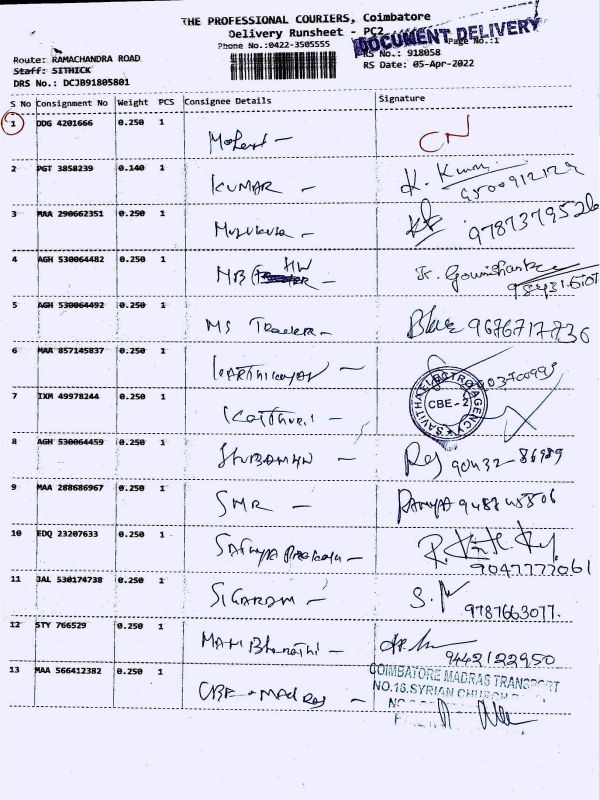 THE PROFESSIONAL COURIERS, Coimbatore
Delivery Runsheet - PC2
Phone No.:0422-3505555
DOCUMENT DELIVERY
Page No.:1
Route: RAMACHANDRA ROAD
RS No.: 918058
Staff: SITHICK
RS Date: 05-Apr-2022
DRS No.: DCJB91805801
S No Consignment No Weight PCS Consignee Details Signature
1 DDG 4201666 0.250 1 CN
2 PGT 3858239 0.140 1 KUMAR - K. Kumar
9500912129
3 MAA 290662351 0.250 1 9787379526
4 AGH 530064482 0.250 1 HW
5 AGH 530064492 0.250 1 MS Tracker - 9676717736
6 MAA 857145837 0.250 1 KARTHIKEYAN -
7 IXM 49978244 0.250 1 Kasthuri -
SAVITHA ELECTRO AGENCY
CBE-2
8 AGH 530064459 0.250 1 SHUBAMHW - Raj 90432 86989
9 MAA 288686967 0.250 1 SMR - RAMYA
10 EDQ 23207633 0.250 1 Sathya Prakash -
9047777061
11 JAL 530174738 0.250 1 SIGARAM -
9787663077.
12 STY 766529 0.250 1 MAM Bharathi -
9442122950
13 MAA 566412382 0.250 1 CBE - Madras -
COIMBATORE MADRAS TRANSPORT
NO.16.SYRIAN CHURCH